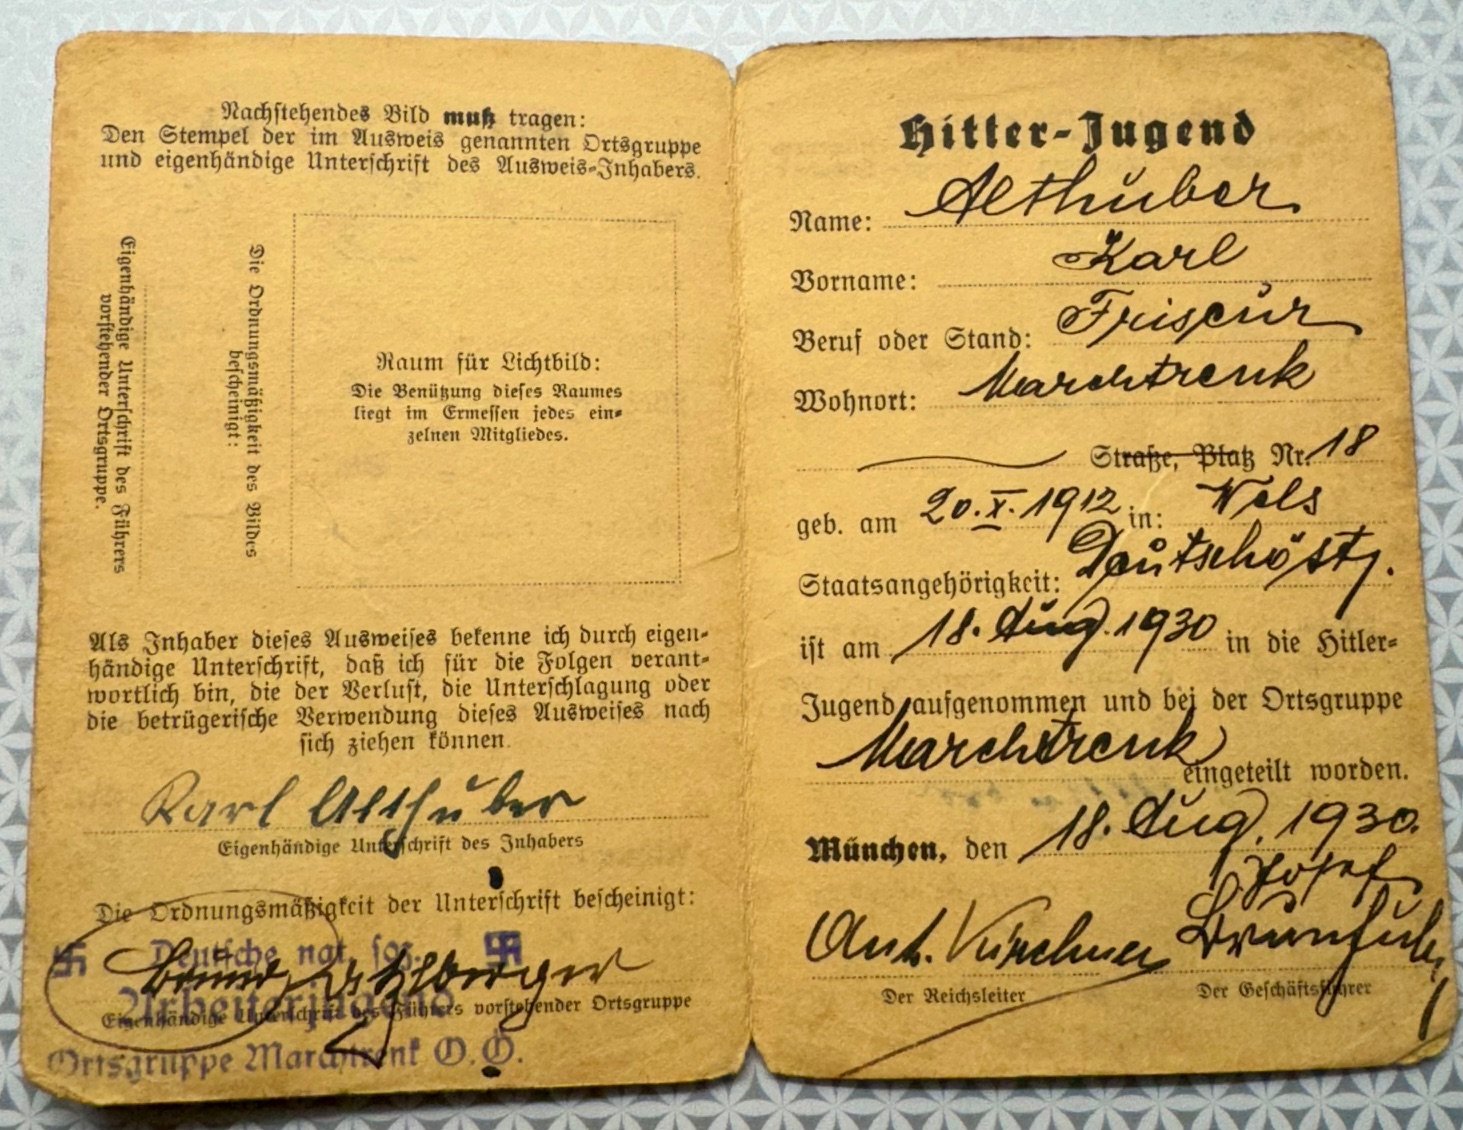 Nachstehendes Bild muß tragen:
Den Stempel der im Ausweis genannten Ortsgruppe
und eigenhändige Unterschrift des Ausweis-Inhabers.
Eigenhändige Unterschrift des Führers
vorstehender Ortsgruppe.
Die Ordnungsmäßigkeit des Bildes
bescheinigt:
Raum für Lichtbild:
Die Benützung dieses Raumes
liegt im Ermessen jedes ein-
zelnen Mitgliedes.
Als Inhaber dieses Ausweises bekenne ich durch eigen-
händige Unterschrift, daß ich für die Folgen verant-
wortlich bin, die der Verlust, die Unterschlagung oder
die betrügerische Verwendung dieses Ausweises nach
sich ziehen können.
Karl Althuber
Eigenhändige Unterschrift des Inhabers
Die Ordnungsmäßigkeit der Unterschrift bescheinigt:
Deutsche nat. soz.
Arbeiterjugend
Eigenhändige Unterschrift des Führers vorstehender Ortsgruppe
Ortsgruppe Marchtrenk O.Ö.
Hitler-Jugend
Name: Althuber
Vorname: Karl
Beruf oder Stand: Friseur
Wohnort: Marchtrenk
Straße, Platz Nr. 18
geb. am 20.X.1912 in: Wels
Staatsangehörigkeit: Deutschöst.
ist am 18. Aug. 1930 in die Hitler-
Jugend aufgenommen und bei der Ortsgruppe
Marchtrenk eingeteilt worden.
München, den 18. Aug. 1930.
Ant. Kirchner Josef
Der Reichsleiter Der Geschäftsführer